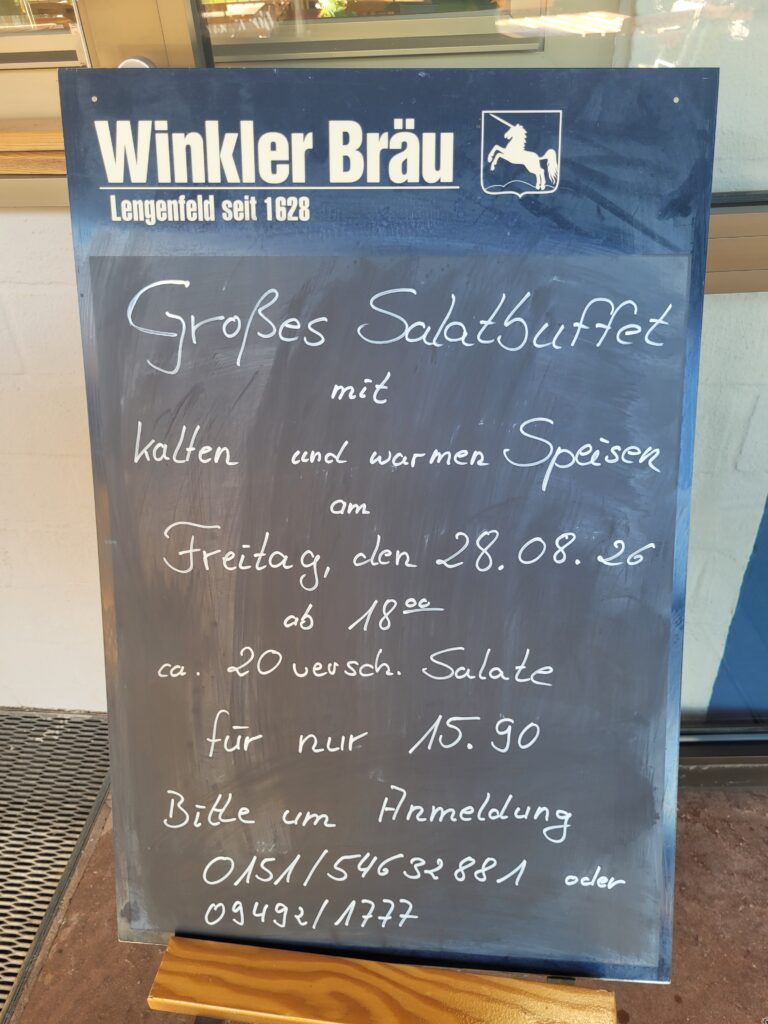 Winkler Bräu
Lengenfeld seit 1628
Großes Salatbuffet
mit
kalten und warmen Speisen
am
Freitag, den 28.08.26
ab 18⁰⁰
ca. 20 versch. Salate
für nur 15.90
Bitte um Anmeldung
0151/54632881 oder
09492/1777